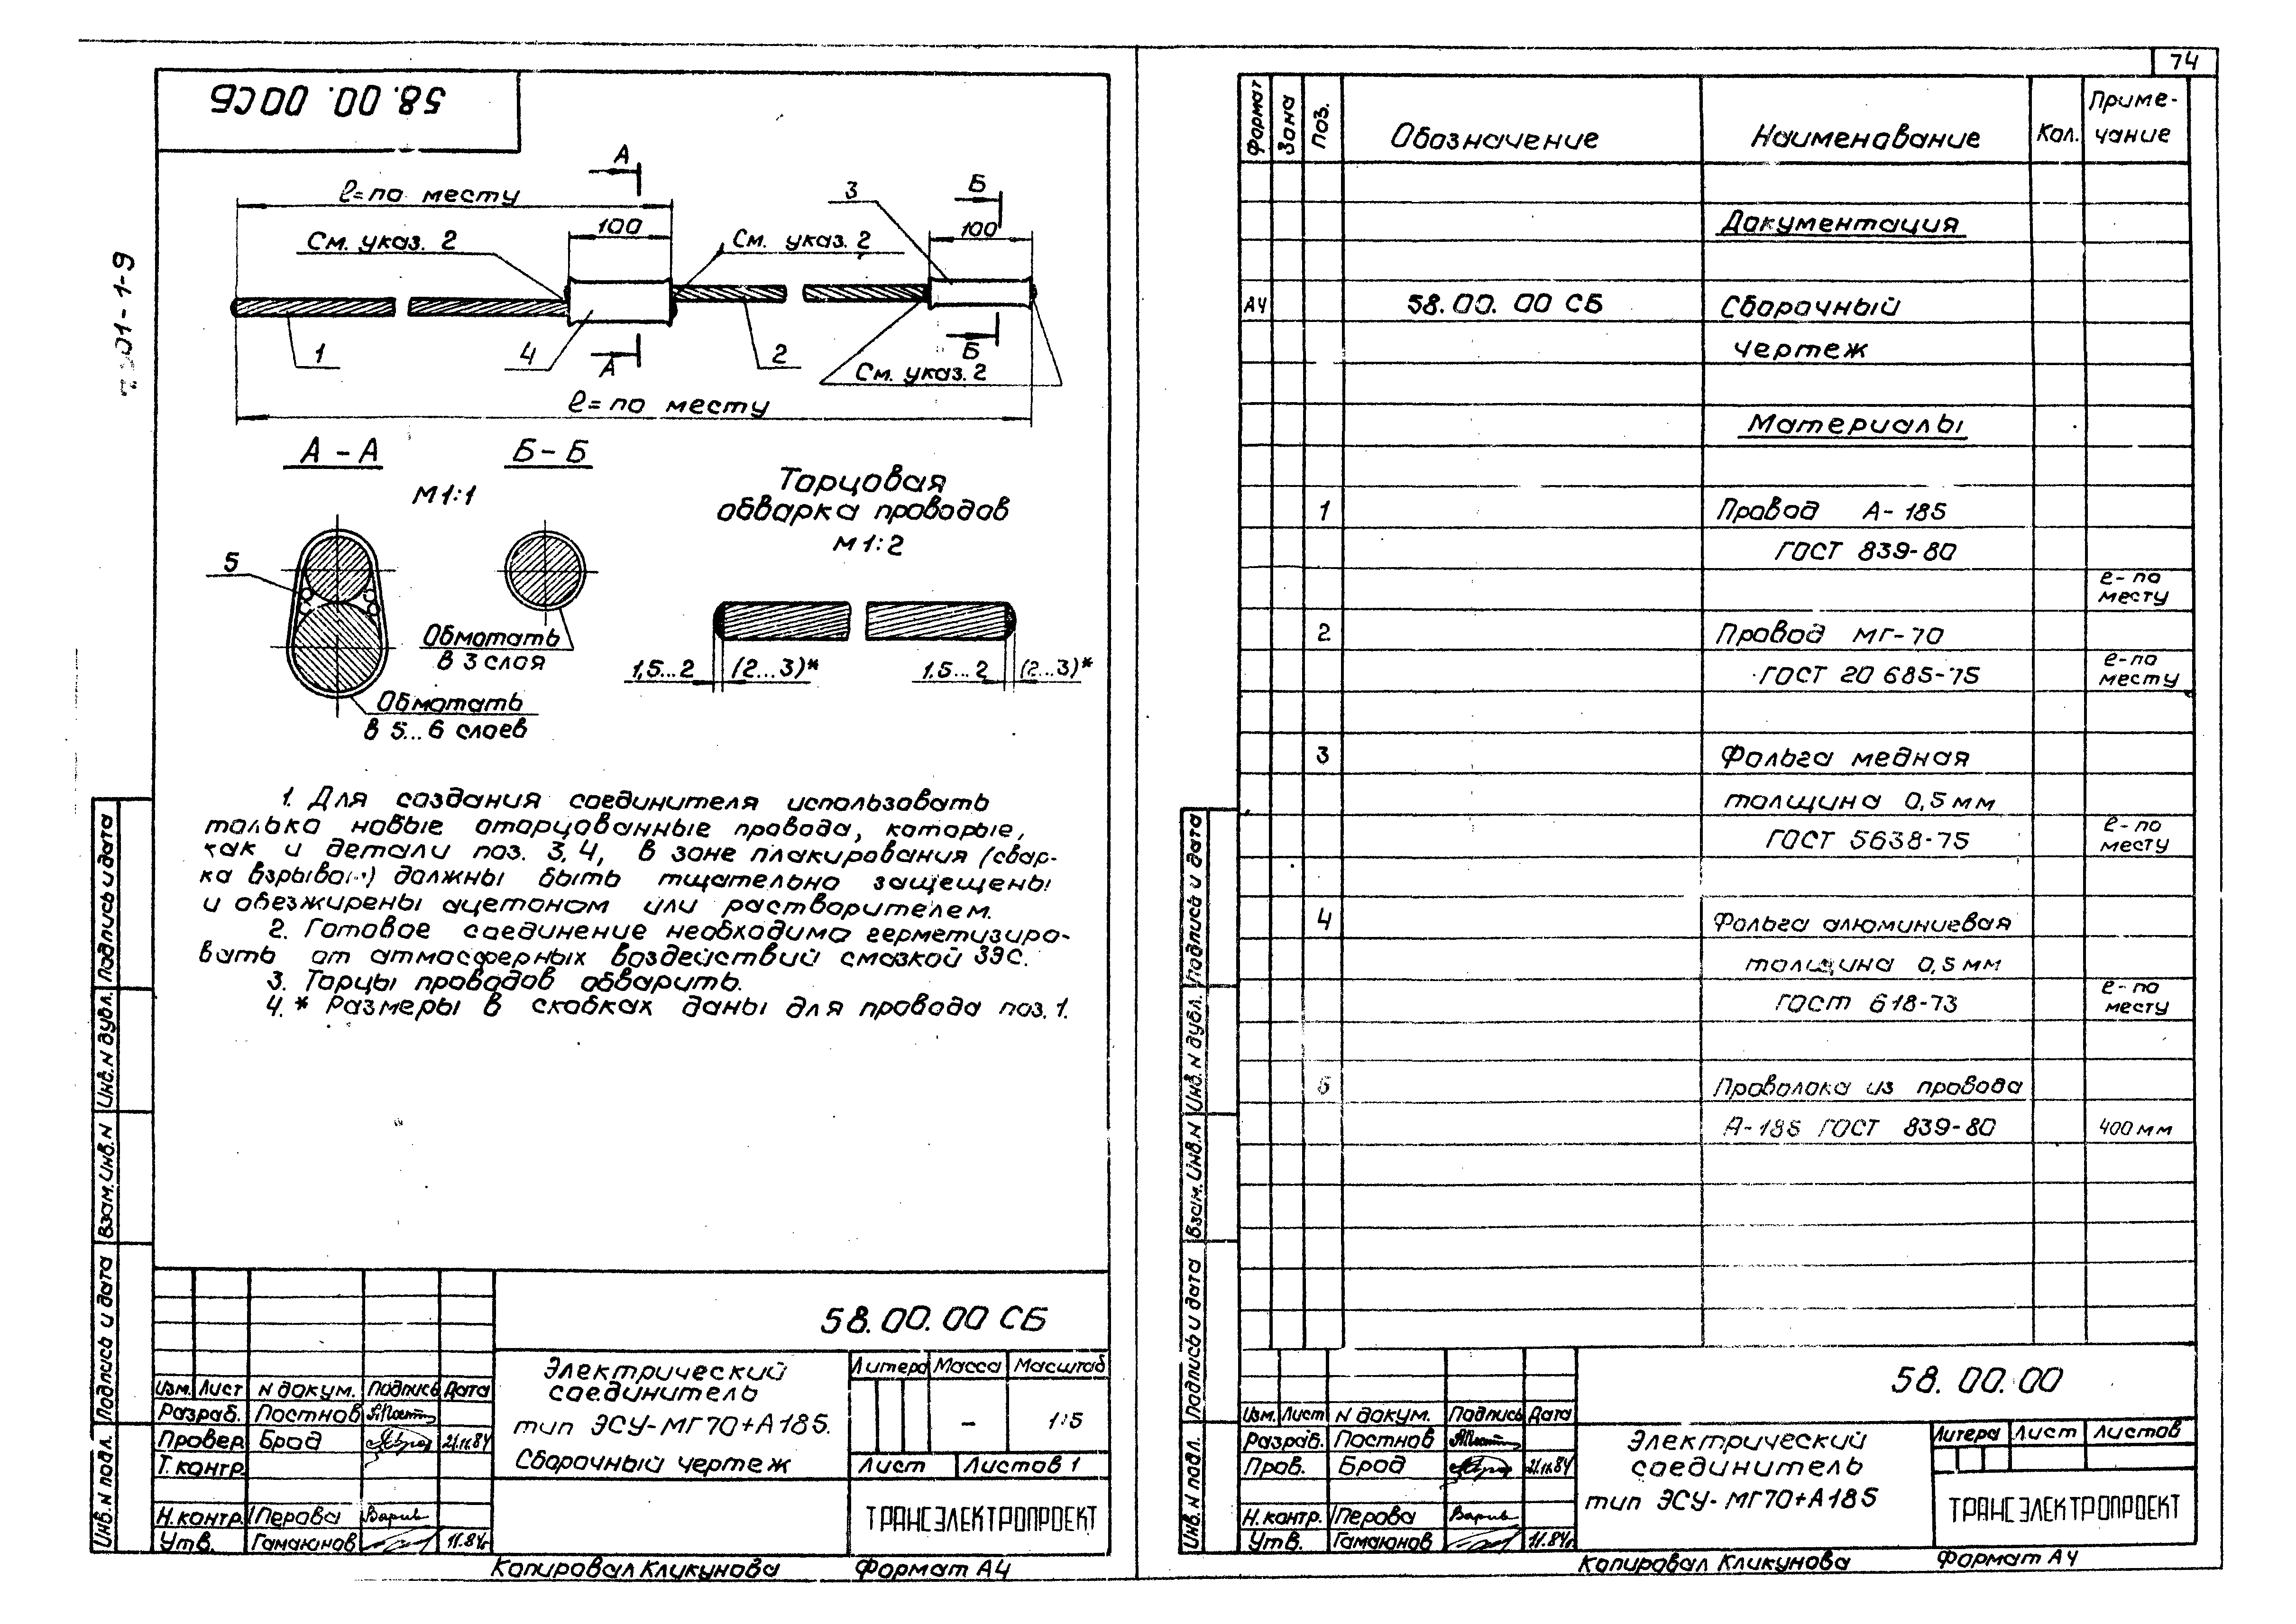 74
58.00.00СБ
1-1-9
А
ℓ=по месту
3
Б
100
100
См. указ. 2
См. указ. 2
1
4
А
2
Б
См. указ. 2
ℓ=по месту
А-А
Б-Б
М1:1
Торцовая
обварка проводов
М1:2
5
Обмотать
в 3 слоя
Обмотать
в 5...6 слоев
1,5...2
(2...3)*
1,5...2
(2...3)*
1. Для создания соединителя использовать
только новые оторцованные провода, которые,
как и детали поз. 3,4, в зоне плакирования (свар-
ка взрывом) должны быть тщательно защещены
и обезжирены ацетоном или растворителем.
2. Готовое соединение необходимо герметизиро-
вать от атмосферных воздействий смазкой ЗЭС.
3. Торцы проводов обварить.
4. * Размеры в скобках даны для провода поз. 1.
Подпись и дата
Инв. N дубл.
Взам. Инв. N
Подпись и дата
Инв. N подл.
58.00.00 СБ
Электрический
соединитель
тип ЭСУ-МГ70+А185.
Сборочный чертеж
Литера Масса Масштаб
- 1:5
Лист Листов 1
ТРАНСЭЛЕКТРОПРОЕКТ
Изм. Лист N докум. Подпись Дата
Разраб. Постнов
Провер. Брод 21.11.84
Т. контр.
Н. контр. Перова
Утв. Гамаюнов 11.84г
Копировал Кликунова Формат А4
Формат Зона Поз. Обозначение Наименование Кол. Приме-
чание
Документация
А4 58.00.00 СБ Сборочный
чертеж
Материалы
1 Провод А-185
ГОСТ 839-80
ℓ-по
месту
2 Провод МГ-70
ГОСТ 20 685-75
ℓ-по
месту
3 Фольга медная
толщина 0,5 мм
ГОСТ 5638-75
ℓ-по
месту
4 Фольга алюминиевая
толщина 0,5 мм
ГОСТ 618-73
ℓ-по
месту
5 Проволока из провода
А-185 ГОСТ 839-80 400 мм
Подпись и дата
Инв. N дубл.
Взам. Инв. N
Подпись и дата
Инв. N подл.
58.00.00
Изм. Лист N докум. Подпись Дата
Разраб. Постнов
Пров. Брод 21.11.84
Н. контр. Перова
Утв. Гамаюнов 11.84г
Электрический
соединитель
тип ЭСУ-МГ70+А185
Литера Лист Листов
ТРАНСЭЛЕКТРОПРОЕКТ
Копировал Кликунова Формат А4